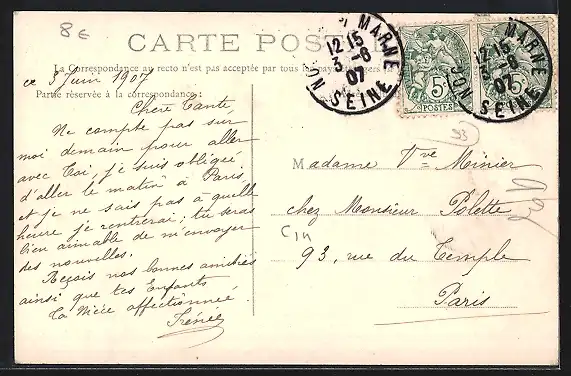 8€
CARTE POSTALE
La Correspondance au recto n'est pas acceptée par tous
ce 3 Juin 1907
Partie réservée à la correspondance
Chère Tante,
Ne compte pas sur
moi demain pour aller
avec Toi, je suis obligée
d'aller le matin à Paris
et je ne sais pas à quelle
heure je rentrerai; tu seras
bien aimable de m'envoyer
des nouvelles.
Reçois nos bonnes amitiés
ainsi que tes Enfants
Ta Nièce affectionnée
Irénée
MARNE
12 15
3 - 6
07
SEINE
5
POSTES
MARNE
12 15
3 - 6
07
SEINE
5
93
Madame Vve Minier
chez Monsieur Polette
93, rue du Temple
Paris